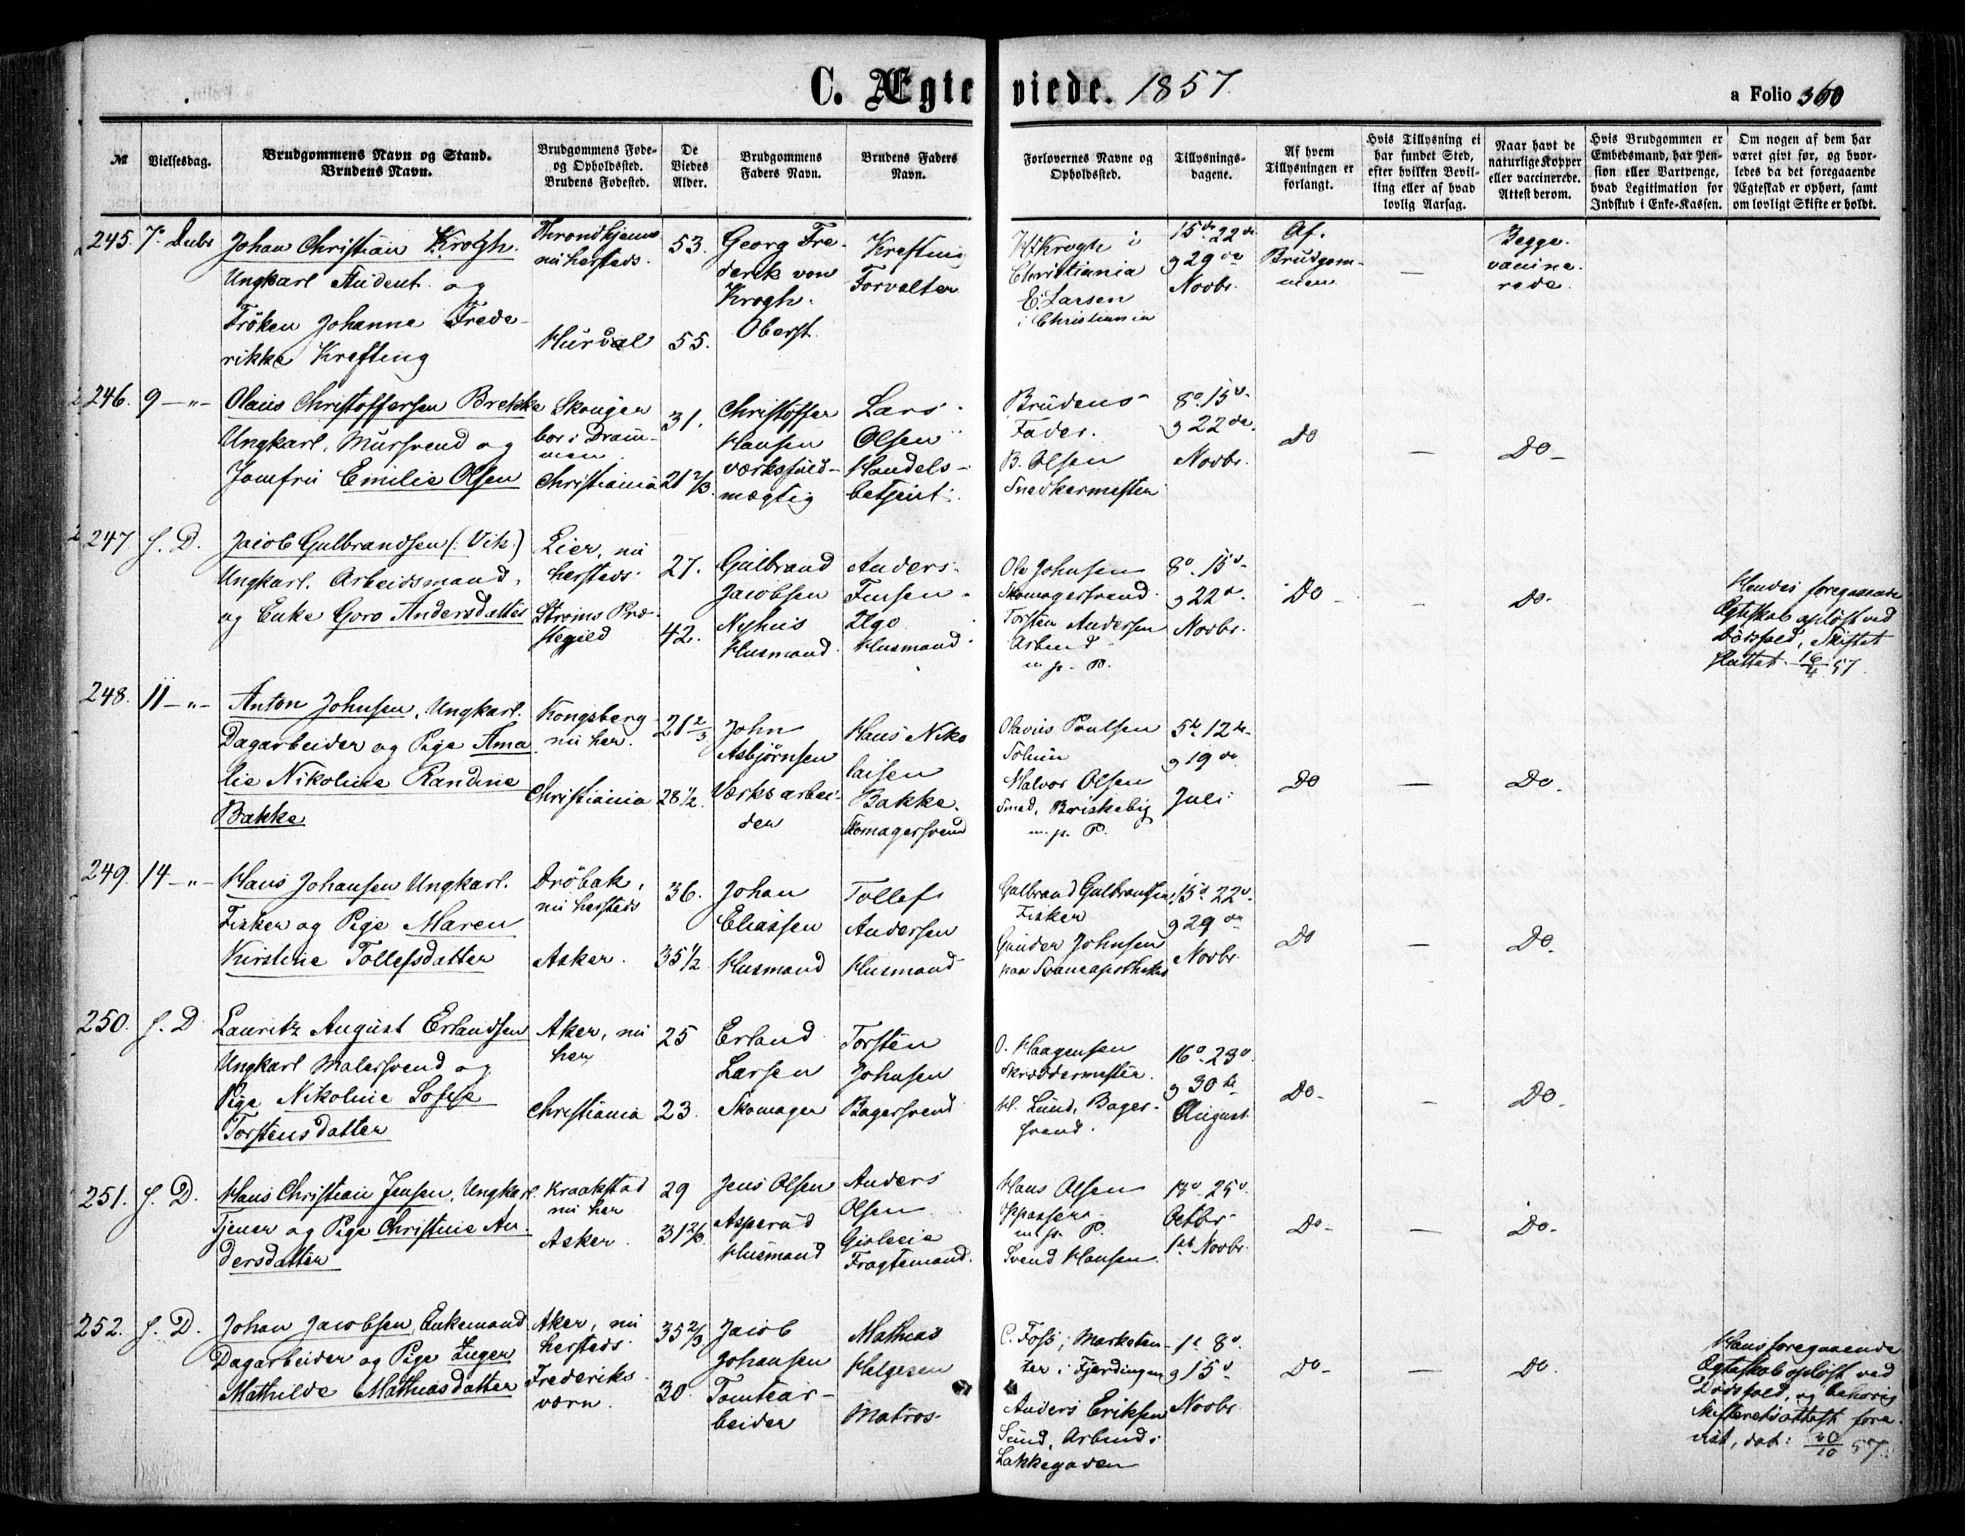 C. Ægteviede. 1857.
a Folio 360
№
Vielsesdag.
Brudgommens Navn og Stand.
Brudens Navn.
Brudgommens Føde-
og Opholdssted.
Brudens Fødested.
De
Viedes
Alder.
Brudgommens
Faders Navn.
Brudens Faders
Navn.
Forlovernes Navne og
Opholdssted.
Tillysnings-
dagene.
Af hvem
Tillysningen er
forlangt.
Hvis Tillysning ei
har fundet Sted,
efter hvilken Bevil-
ling eller af hvad
lovlig Aarsag.
Naar havt de
naturlige Kopper
eller vaccinerede.
Attest derom.
Hvis Brudgommen er
Embedsmand, har Pen-
sion eller Vartpenge,
hvad Legitimation for
Indskud i Enke-Kassen.
Om nogen af dem har
været givt før, og hvor-
ledes da det foregaaende
Ægteskab er ophørt, samt
om lovligt Skifte er holdt.
245. 7. Decbr
Johan Christian Krogh.
Ungkarl Student. og
Frøken Johanne Frede-
rikke Krefting
Throndhjem
nu hersteds.
Hurdal
53.
55.
Georg Fre-
derik von
Krogh.
Oberst.
Krefting
Forvalter
Krogh i
Christiania
E. Larsen
i Christiania
15de 22de
og 29de
Novbr.
Af.
Brudgom-
men
—
Begge
vaccine-
rede.
246. 9 — " —
Olaus Christoffersen Brekke
Ungkarl, Mursvend og
Jomfru Emilie Olsen
Skouger
bor i Dram-
men.
Christiania
31.
21 2/3.
Christoffer
Hansen
værksfuld-
mægtig
Lars
Olsen
Handels-
betjent.
Brudens
Fader.
B. Olsen
Snedkermester
8de 15de
og 22de
Novbr.
Do
—
Do —
247 s. D.
Jacob Gulbrandsen (: Vik :)
Ungkarl. Arbeidsmand,
og Enke Goro Andersdatter
Lier, nu
hersteds.
Strøms Præ-
stegjeld
27.
42.
Gulbrand
Jacobsen
Nyhus
Husmand.
Anders
Husmand.
Ole Johnsen
Skomagersvend.
Torsten Andersen
Arbmd
m. p. P.
8de 15de
og 22de
Novbr.
Do —
—
Do.
Hendes foregaaende
Ægteskab opløst ved
Dødsfald, Skiftet
sluttet 16/4 57.
248. 11 — " —
Anton Johnsen, Ungkarl.
Dagarbeider og Pige Ama
lie Nikoline Randine
Bakke
Kongsberg
nu her.
Christiania
21 2/3
28 1/2.
John
Asbjørnsen
Værksarbei-
der
Hans Niko
laisen
Bakke.
Skomagersvend
Olavus Paulsen
Halvor Olsen
Smed, Briskeby
m. p. P.
5te 12te
og 19de
Juli
Do
—
Do.
249. 14 — " —
Hans Johansen Ungkarl.
Fisker og Pige Maren
Kirstine Tollefsdatter
Drøbak,
nu hersteds
Asker.
36.
35 1/2
Johan
Eliassen
Husmand
Tollef
Andersen
Husmand
Gulbrand Gulbrandsen
Fisker
Gunder Johnsen
paa Svaneapotheket
15de 22de
og 29de
Novbr.
Do
—
Do.
250. s. D
Lauritz August Erlandsen
Ungkarl Malersvend og
Pige Nikoline Sofie
Torstensdatter
Aker, nu
her
Christiania
25
23.
Erland
Larsen
Skomager
Torsten
Johnsen
Bagersvend
O. Haagensen
Skræddermester.
H. Lund, Bager-
svend.
16de 23de
og 30te
August.
Do —
—
Do —
251. s. D.
Hans Christian Jensen, Ungkarl.
Tjener og Pige Christine An-
dersdatter
Kraakstad
nu her
Asker.
29
31 2/3.
Jens Olsen
Asperud
Husmand
Anders
Olsen
Fragtemand.
Hans Olsen
Oppassere
m. p. P.
Svend Hansen.
25de
Octbr
1ste Novbr.
Do —
—
Do —
252. s. D.
Johan Jacobsen, Enkemand
Dagarbeider og Pige Inger
Mathilde Mathiasdatter
Aker, nu
hersteds.
Frederiks-
værn.
35 2/3
30.
Jacob
Johansen
Tomtear-
beider
Mathias
Helgesen
Matros.
C. Foss, Marketen-
ter i Fjerdingen
Anders Eriksen
Sund, Arbmd i
Lakkegaden
1ste 8de
og 15de
Novbr
Do —
—
Do.
Hans foregaaende
Ægteskab opløst ved
Dødsfald, og behørig
Skifteretsattest fore-
vist, dat: 20/10 57.